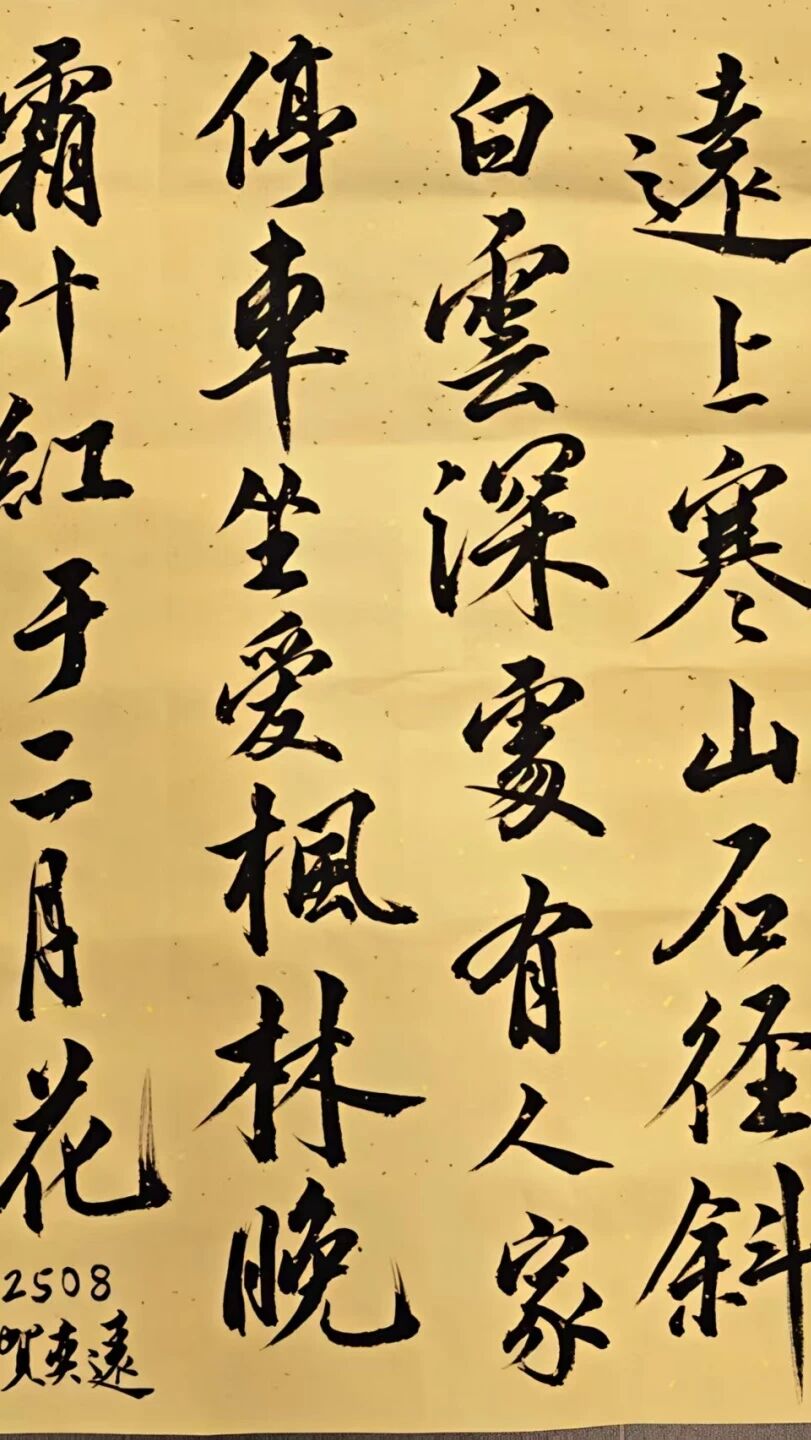 遠上寒山石径斜
白雲深處有人家
停車坐愛楓林晚
霜叶紅于二月花
2508
賀奕遠